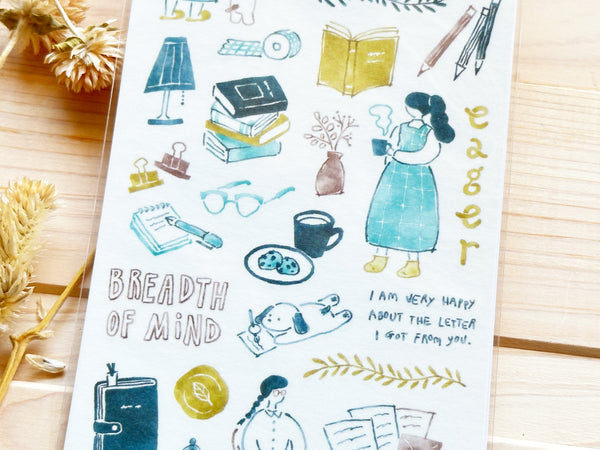 eager
BREADTH
OF MIND
I AM VERY HAPPY
ABOUT THE LETTER
I GOT FROM YOU.